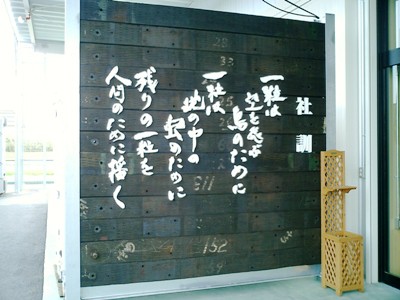 社訓
一粒は
空を飛ぶ
鳥のために
一粒は
地の中の
虫のために
残りの一粒を
人间のために播く
28
33
25
113
132